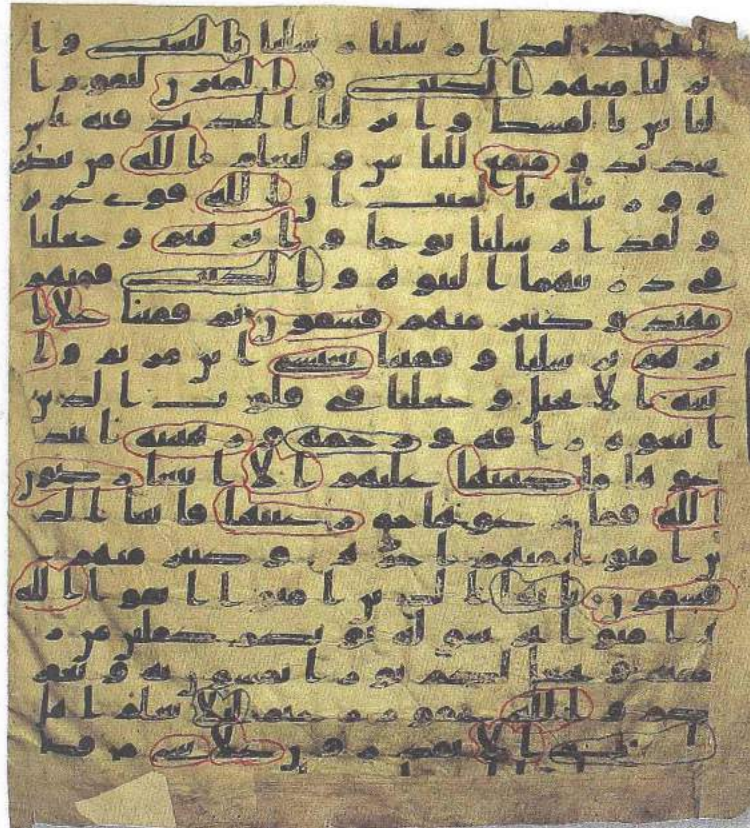 الحميد لقد ارسلنا رسلنا بالبينت وا
نزلنا معهم الكتب والميزن ليقوم ا
لناس بالقسط وانزلنا الحديد فيه باس
شديد ومنفع للناس وليعلم الله من ينصر
ه ورسله بالغيب ان الله قوي عزيز
ولقد ارسلنا نوحا وابرهيم وجعلنا
في ذريتهما النبوة والكتب فمنهم
مهتد وكثير منهم فسقون ثم قفينا علا ا
ثرهم برسلنا وقفينا بعيسى ابن مريم وا
تينه الانجيل وجعلنا في قلوب الذين
اتبعوه رافة ورحمة ورهبنية ابتد
عوها ما كتبنها عليهم الا ابتغا رضون
الله فما رعوها حق رعيتها فاتينا الذ
ين امنوا منهم اجرهم وكثير منهم
فسقون يايها الذين امنوا اتقوا الله
وامنوا برسوله يوتكم كفلين من ر
حمته ويجعل لكم نورا تمشون به ويغفر
لكم والله غفور رحيم ليلا يعلم اهل
الكتب الا يقدرون علا شي من فضل